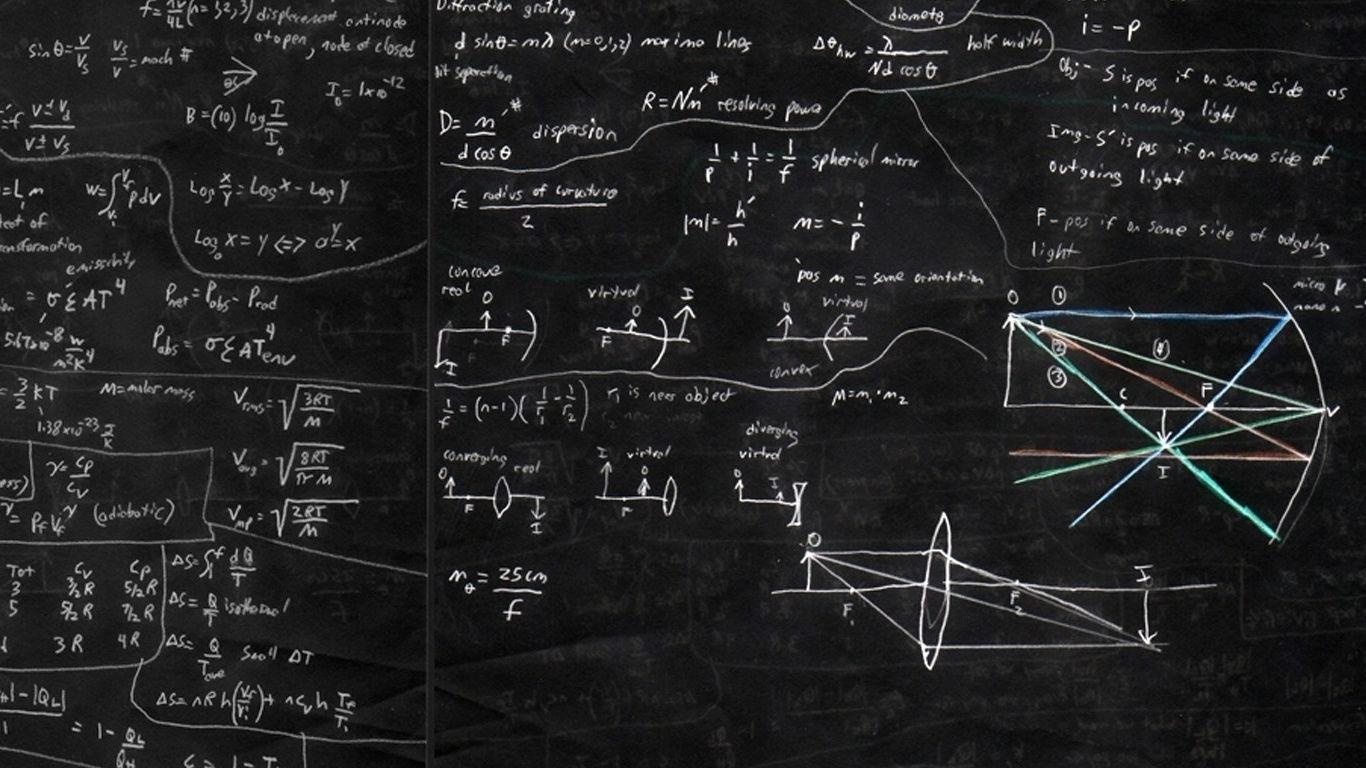 f = nv/4L (n=1,3,2,3) displacement antinode
at open, node at closed
sin θ = v/v_s   v_s/v = mach #
I₀ = 1x10⁻¹²
= f (v ± v_d)/(v ± v_s)
B = (10) log I/I₀
= L m   w = ∫ p dV
Log x/y = Log x - Log y
Log x = y <=> aʸ = x
emissivity
= σ Σ A T⁴   P_net = P_abs - P_rad
5.67x10⁻⁸ w/m²k⁴   P_abs = σ Σ A T⁴env
= 3/2 kT   M = molar mass
1.38x10⁻²³ J/K
V_rms = √(3RT/M)
V_avg = √(8RT/πM)
V_mp = √(2RT/M)
γ = C_P/C_V
= P_f V_f^γ (adiabatic)
Tot   C_V   C_P
3   3/2 R   5/2 R
5   5/2 R   7/2 R
3R   4R
ΔS = ∫ dQ/T
ΔS = Q/T isothermal
ΔS = Q/T_ave small ΔT
ΔS = nR ln(V_f/V_i) + nC_V ln T_f/T_i
|-|Q_L|
= 1 - Q_L/Q_H
Diffraction grating
d sinθ = mλ (m=0,1,2) maxima lines
slit separation
D = m/(d cosθ) dispersion
R = Nm resolving power
diameter
Δθ_hw = λ/(N d cosθ) half width
1/p + 1/i = 1/f spherical mirror
f = radius of curvature/2
|m| = h'/h   m = - i/p
pos m = same orientation
concave
real
O
F
I
virtual
O
F
I
virtual
O
I
convex
1/f = (n-1)(1/r₁ - 1/r₂) r₁ is near object
M = m₁ · m₂
converging real
O
F
I
virtual
I
O
F
diverging
virtual
O
I
m_θ = 25cm/f
O
F₁
F₂
I
i = -p
Obj - S is pos if on same side as
incoming light
Img - S' is pos if on same side of
outgoing light
F - pos if on same side of outgoing
light
micro μ
nano n
O
1
2
3
4
C
F
V
I